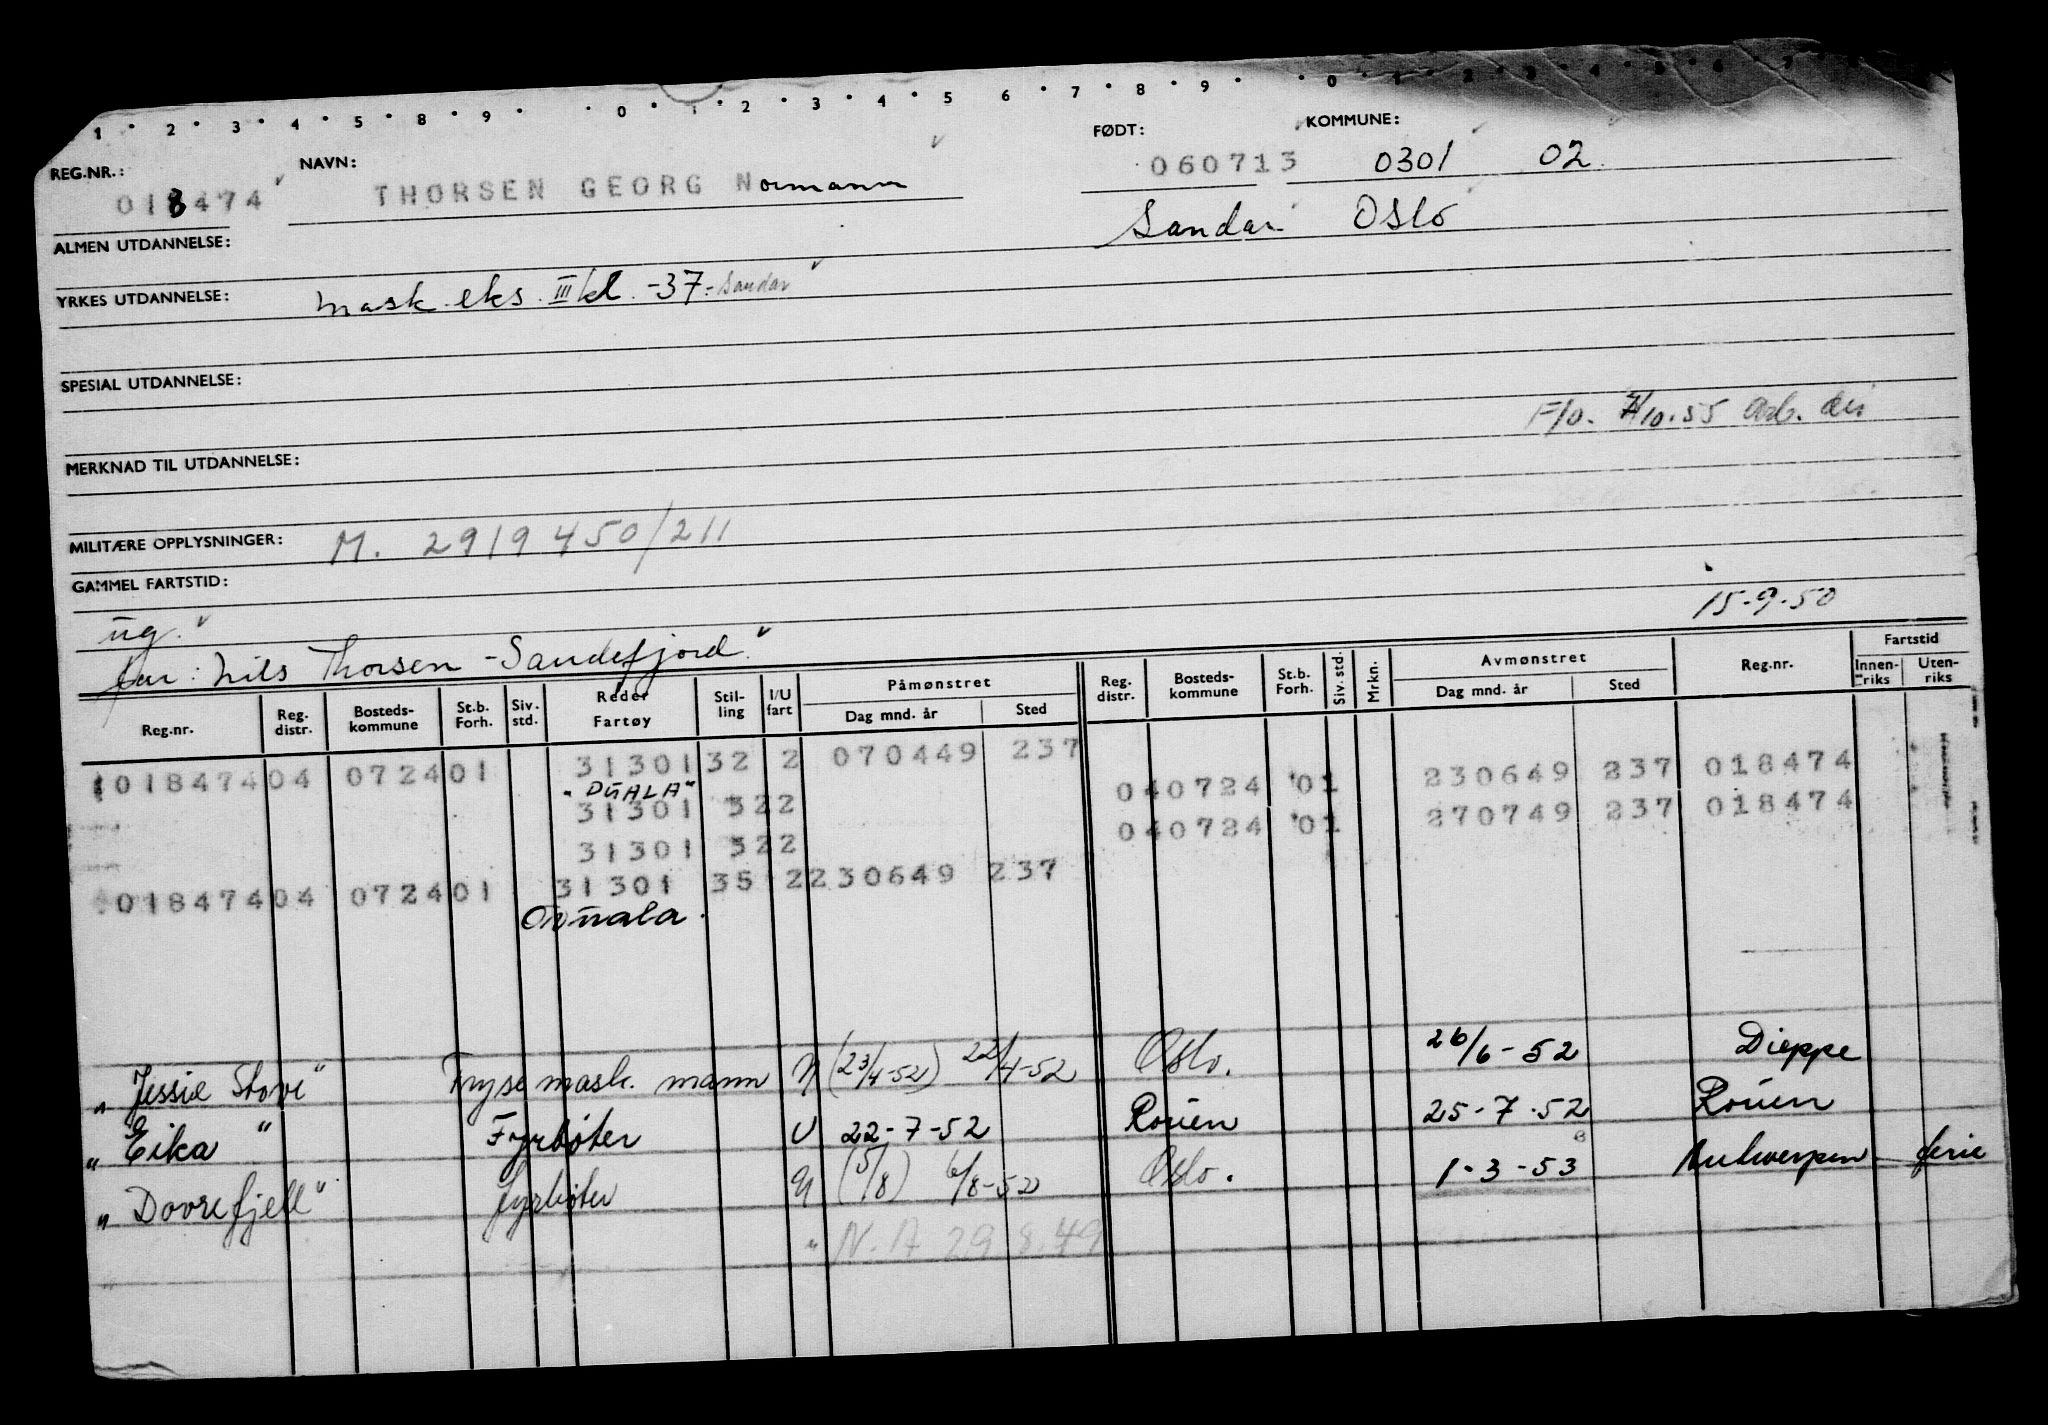 1 · 2 · 3 · 4 · 5 · 8 · 9 · 0 · 1 · 2 · 3 · 4 · 5 6 · 7 · 8 · 9 · 0 · 1 · 2 · 3 · 4 · 5 · 6 · 7
REG.NR.: NAVN: FØDT: KOMMUNE:
018474 THORSEN GEORG Normann 060713 0301 02
Sandar Oslo
ALMEN UTDANNELSE:
YRKES UTDANNELSE: mask. eks. III kl. -37- Sandar
SPESIAL UTDANNELSE:
F/0. 7/10.55 Arb. dir
MERKNAD TIL UTDANNELSE:
MILITÆRE OPPLYSNINGER: M. 2919450/211
GAMMEL FARTSTID:
ug. 15-9-50
far: Nils Thorsen - Sandefjord
Reg.nr. Reg. distr. Bosteds-kommune St.b. Forh. Siv. std. Reder Fartøy Stil-ling I/U fart Påmønstret Dag mnd. år Sted Reg. distr. Bosteds-kommune St.b. Forh. Siv. std. Mrkn. Avmønstret Dag mnd. år Sted Reg.nr. Fartstid Innen-riks Uten-riks
018474 04 0724 01 31301 32 2 070449 237
"DUALA" 040724 01 230649 237 018474
31301 522
040724 01 270749 237 018474
31301 522
018474 04 0724 01 31301 35 2 230649 237
"Jessie Stove" Frysemask. mann U (23/4-52) 22/4-52 Oslo. 26/6-52 Dieppe
"Eika" Fyrbøter U 22-7-52 Rouen 25-7-52 Rouen
"Dovrefjell" fyrbøter U (5/8) 6/8-52 Oslo. 1-3-53 Antwerpen ferie
" N.A 29.8.49